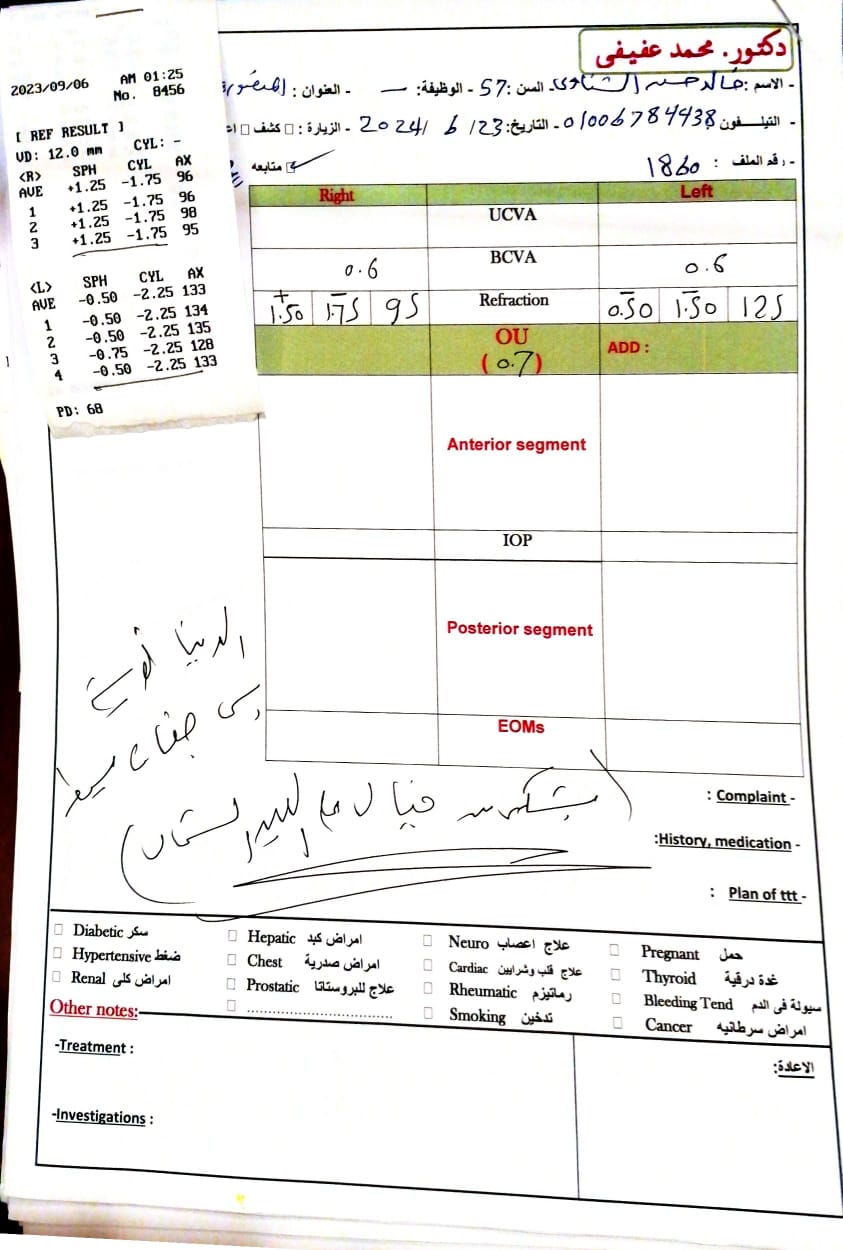 2023/09/06 AM 01:25
No. 8456
[ REF RESULT ]
VD: 12.0 mm CYL: -
<R> SPH CYL AX
AVE +1.25 -1.75 96
1 +1.25 -1.75 96
2 +1.25 -1.75 98
3 +1.25 -1.75 95
<L> SPH CYL AX
AVE -0.50 -2.25 133
1 -0.50 -2.25 134
2 -0.50 -2.25 135
3 -0.75 -2.25 128
4 -0.50 -2.25 133
PD: 68
دكتور. محمد عفيفى
- الاسم : خالد حسن الشناوى - السن : 57 - الوظيفة: — - العنوان : المنصورة
- التيلفون 01006784438 - التاريخ: 23 / 6 / 2024 - الزيارة : □ كشف □
- رقم الملف : 1860 متابعه
Right Left
UCVA
0.6 BCVA 0.6
+1.50 -1.75 95 Refraction -0.50 -1.50 125
OU ADD :
(0.7)
Anterior segment
IOP
Posterior segment
EOMs
الدنيا
: Complaint -
:History, medication -
: Plan of ttt -
□ Diabetic سكر □ Hepatic امراض كبد □ Neuro علاج اعصاب □ Pregnant حمل
□ Hypertensive ضغط □ Chest امراض صدرية □ Cardiac علاج قلب وشرايين □ Thyroid غدة درقية
□ Renal امراض كلى □ Prostatic علاج للبروستاتا □ Rheumatic رماتيزم □ Bleeding Tend سيولة فى الدم
Other notes: □ .................................. □ Smoking تدخين □ Cancer امراض سرطانيه
-Treatment :
الاعادة:
-Investigations :